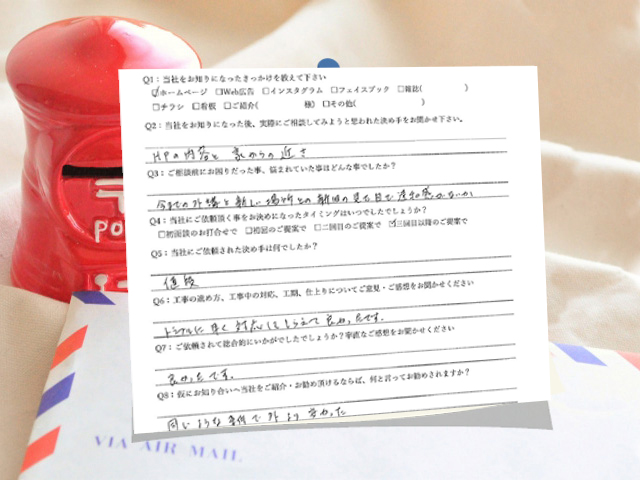 Q1：当社をお知りになったきっかけを教えて下さい
☑ホームページ □Web広告 □インスタグラム □フェイスブック □雑誌( )
□チラシ □看板 □ご紹介( 様) □その他( )
Q2：当社をお知りになった後、実際にご相談してみようと思われた決め手をお聞かせ下さい。
HPの内容と家からの近さ
Q3：ご相談前にお困りだった事、悩まれていた事はどんな事でしたか？
今までの外構と新しい場所との新旧の見た目で違和感がないか
Q4：当社にご依頼頂く事をお決めになったタイミングはいつでしたでしょうか？
□初面談のお打合せで □初回のご提案で □二回目のご提案で ☑三回目以降のご提案で
Q5：当社にご依頼された決め手は何でしたか？
値段
Q6：工事の進め方、工事中の対応、工期、仕上りについてご意見・ご感想をお聞かせください
トラブルに早く対応してもらえて良かったです。
Q7：ご依頼されて総合的にいかがでしたでしょうか？率直なご感想をお聞かせください
良かったです。
Q8：仮にお知り合いへ当社をご紹介・お勧め頂けるならば、何と言ってお勧めされますか？
同じような条件で外より安かった
PO
VIA AIR MAIL